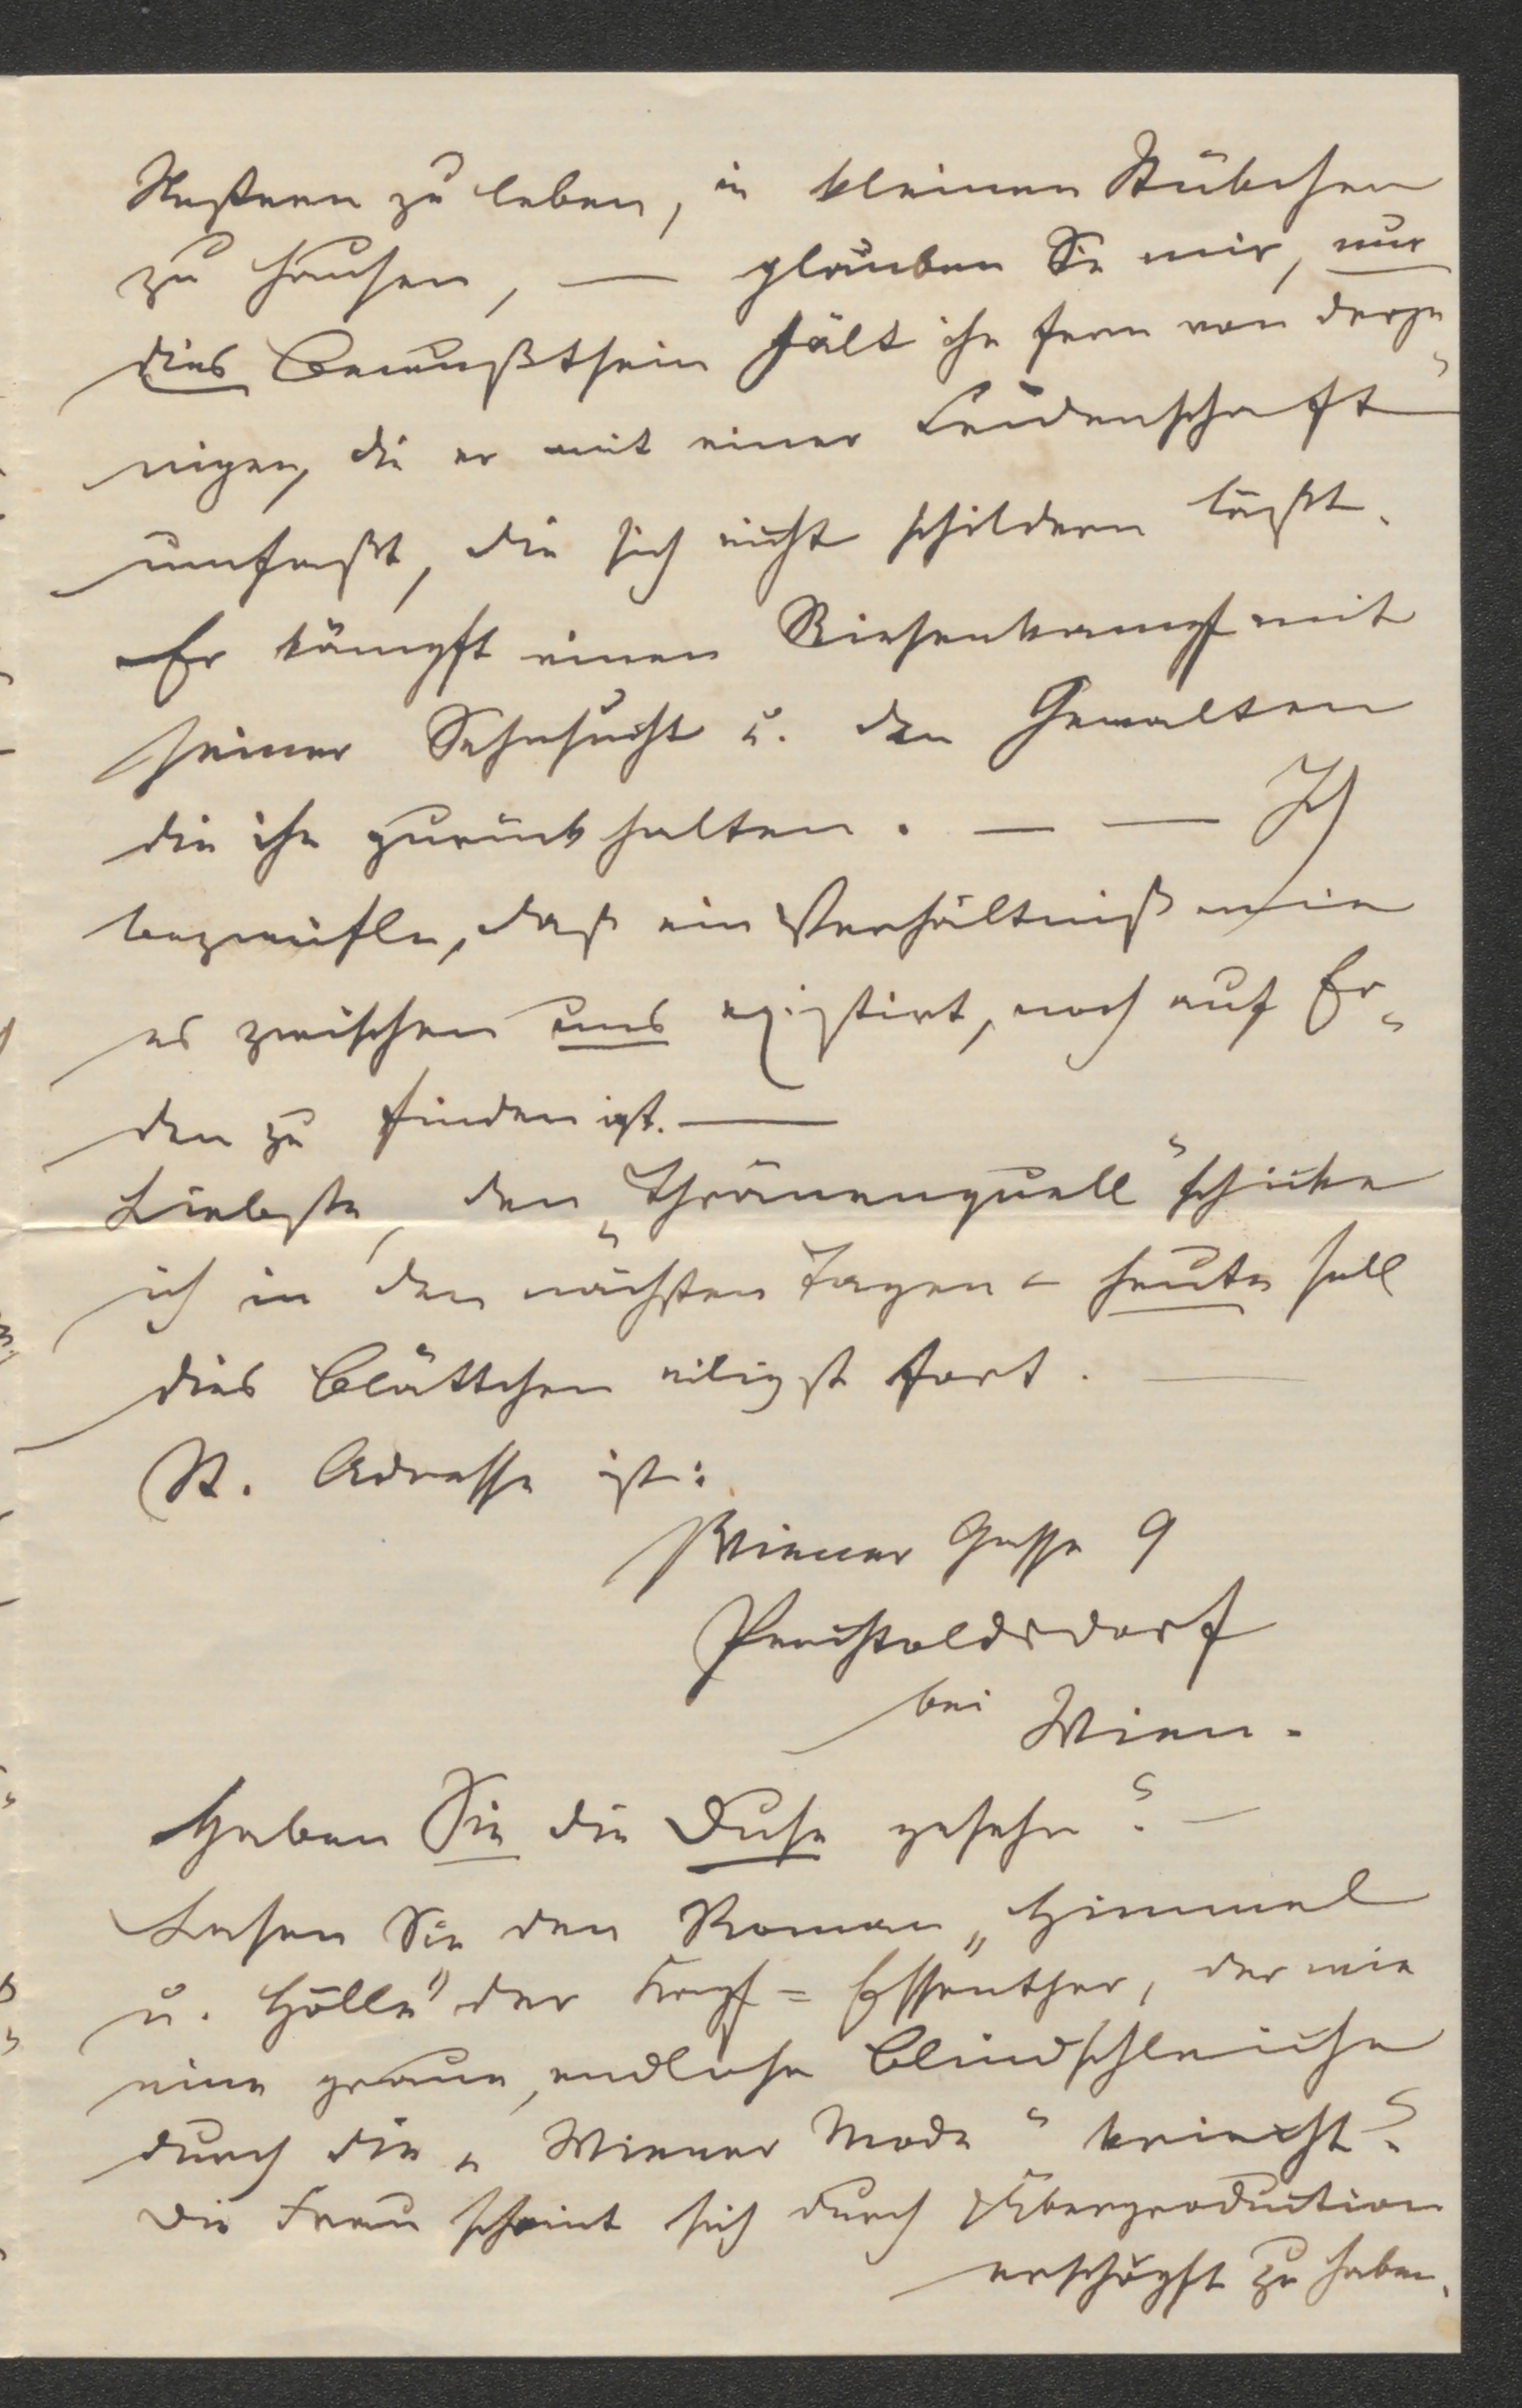 Nestern zu leben, in kleinen Stübchen
zu hausen, — glauben Sie mir, nur
dies Bewußtsein hält ihn fern von derje-
nigen, die er mit einer Leidenschaft
umfaßt, die sich nicht schildern läßt.
Er kämpft einen Riesenkampf mit
seiner Sehnsucht u. den Gewalten
die ihn zurückhalten. — — Ich
bezweifle, daß ein Verhältniß wie
es zwischen uns existirt, noch auf Er-
den zu finden ist. —
Liebste, den „Thränenquell“ schicke
ich in den nächsten Tagen – heute soll
dies Blättchen eiligst fort. —
St. Adresse ist:
Wiener Gasse 9
Perchtoldsdorf
bei Wien.
Haben Sie die Duse gesehn? —
Lesen Sie den Roman „Himmel
u. Hölle“ der Kapf-Essenther, der wie
eine graue, endlose Blindschleiche
durch die „Wiener Mode“ kriecht?
Die Frau scheint sich durch Überproduction
erschöpft zu haben.